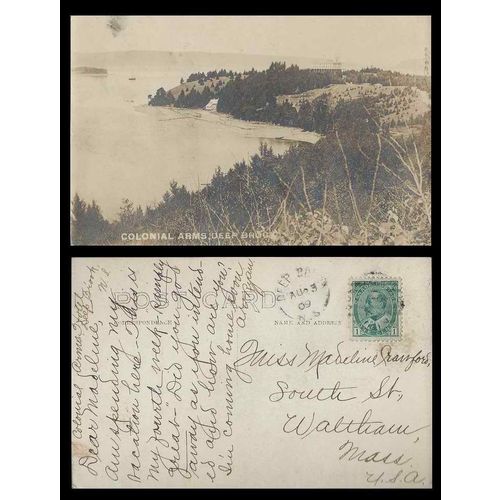 COLONIAL ARMS, DEEP BROOK
POST CARD
CORRESPONDENCE
NAME AND ADDRESS
DEEP BR
AU 3
09
1
1
Colonial Arms Hotel
Deep Brook
N.S.
Dear Madeline
am spending my
vacation here - This is
my fourth week, simply
great - Did you go
away as you intend-
ed and how are you
I'm coming home soon
Miss Madeline Crawford,
South St.,
Waltham
Mass.
U.S.A.